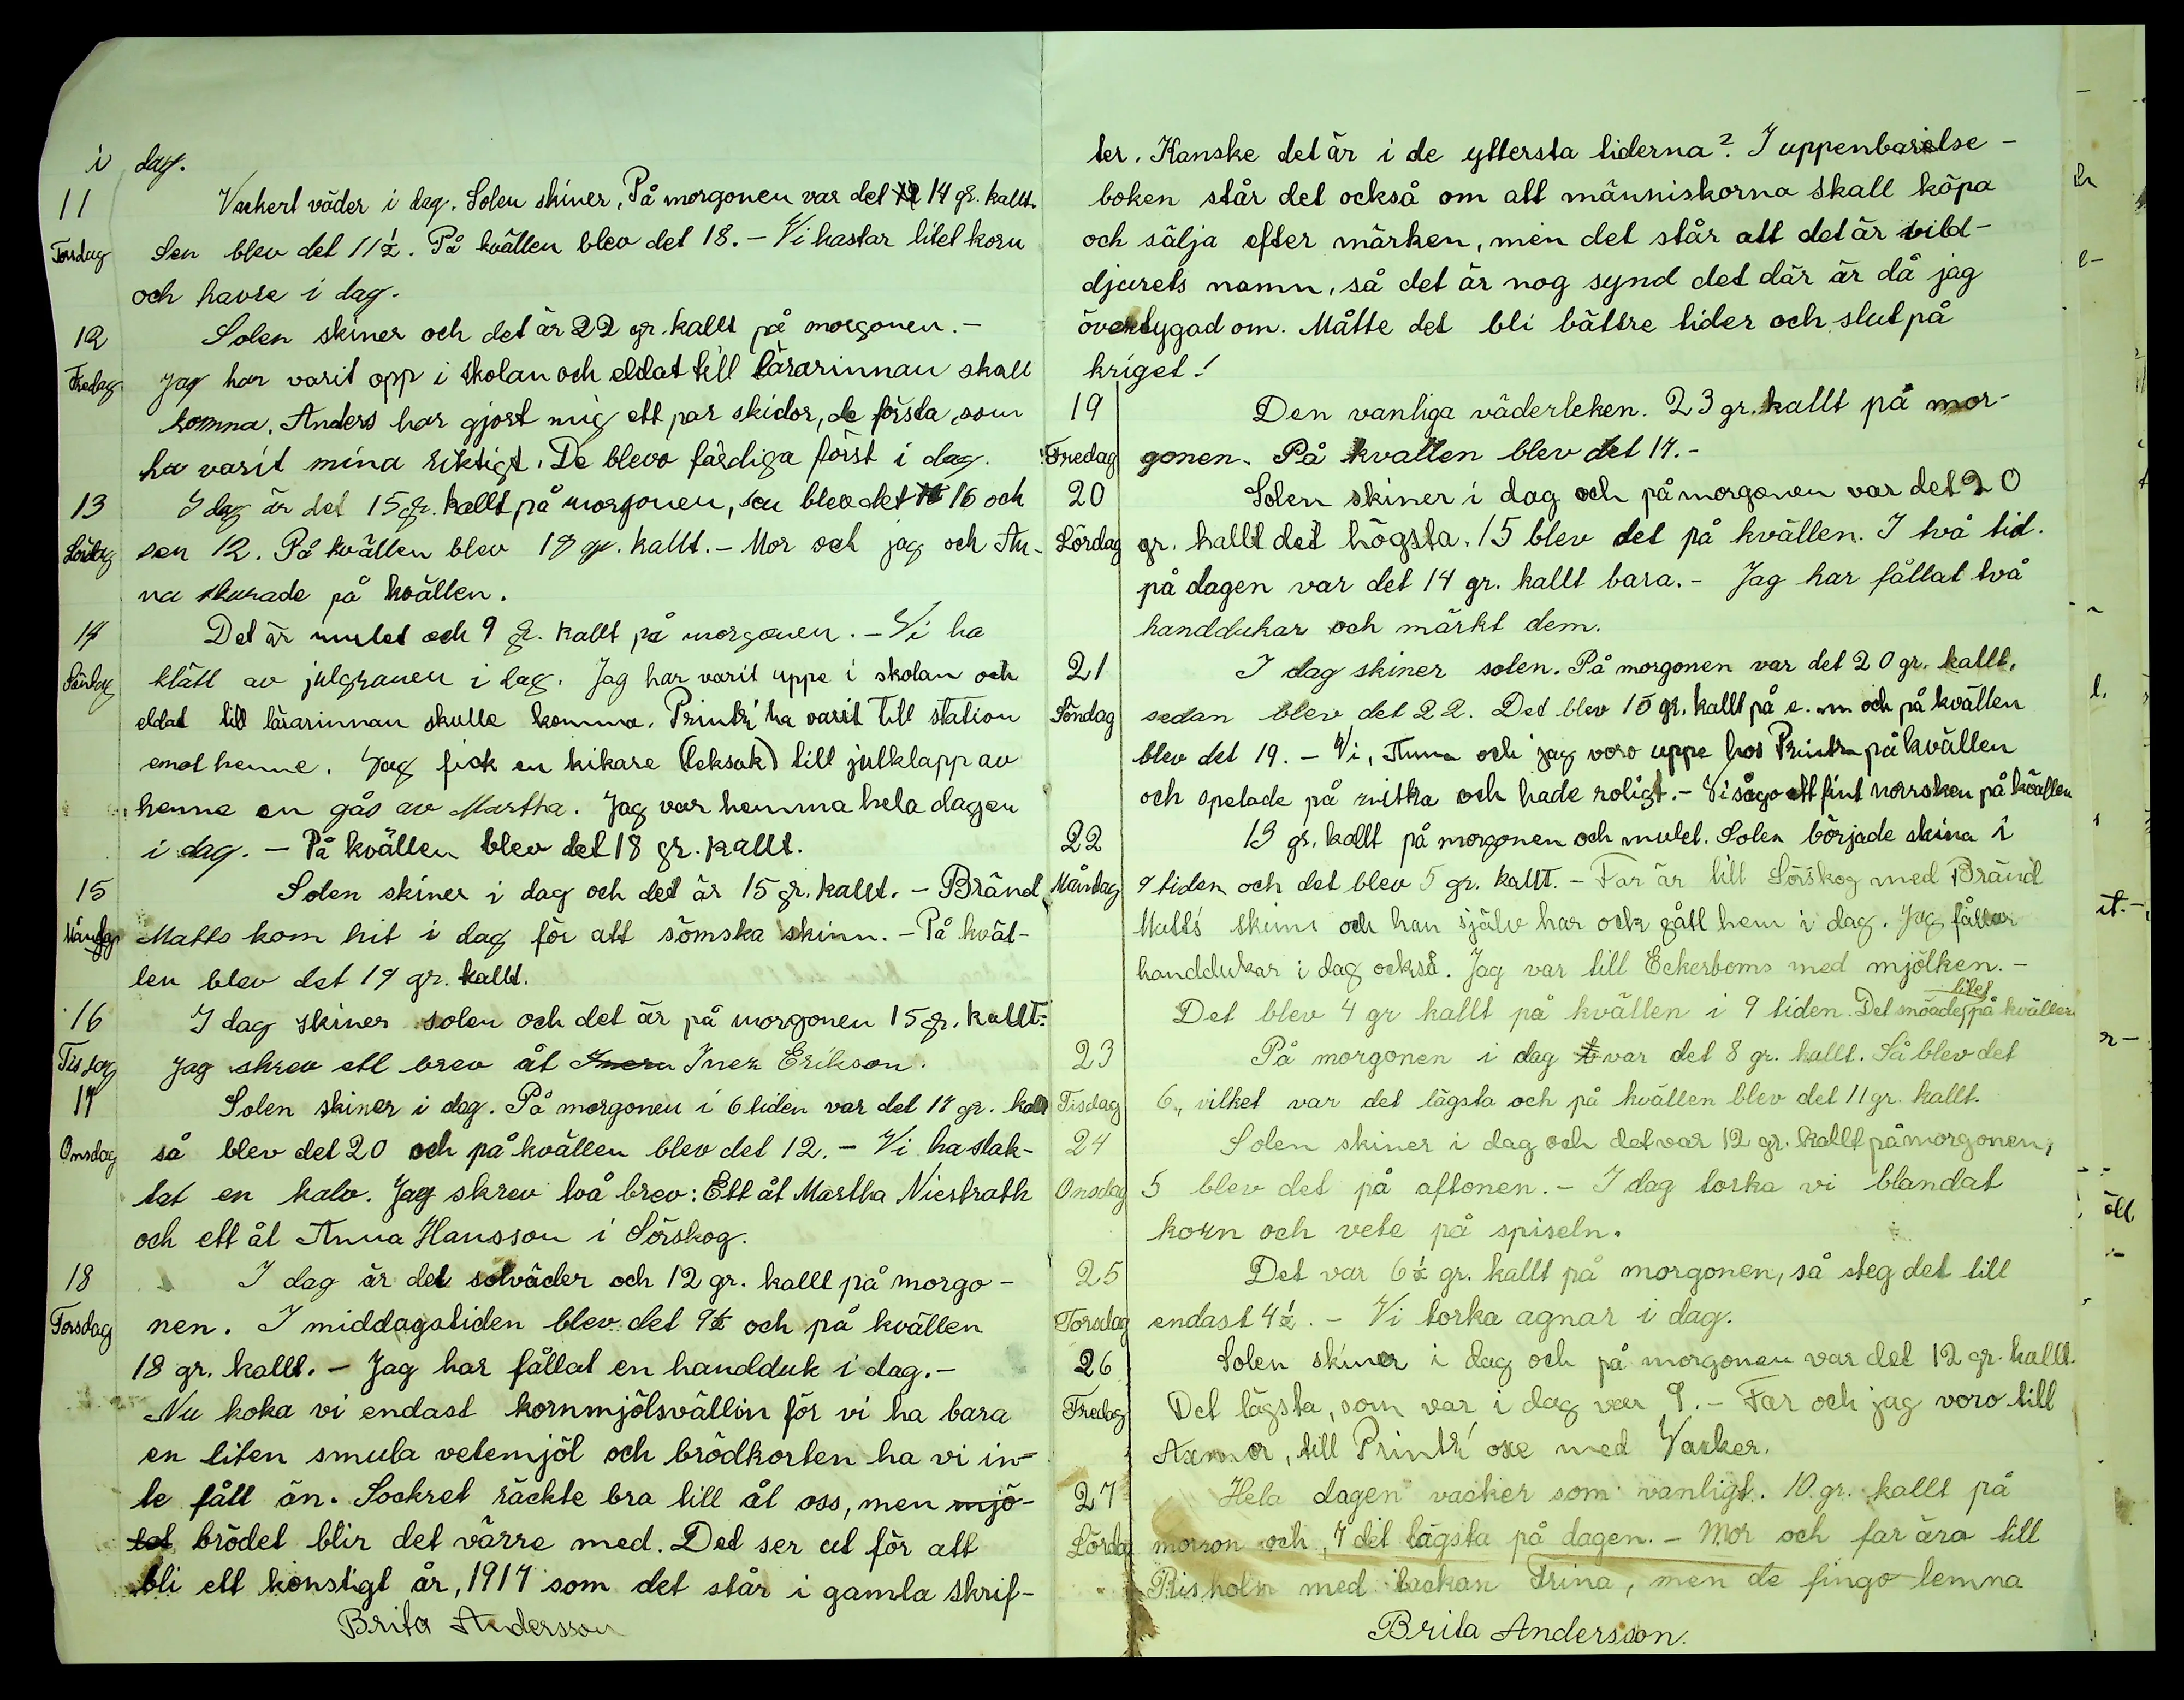 i dag.
11 Vackert väder i dag. Solen skiner. På morgonen var det 14 gr. kallt.
Torsdag Sen blev det 11½. På kvällen blev det 18. – Vi hastar litet korn
och havre i dag.
12 Solen skiner och det är 22 gr. kallt på morgonen. –
Fredag Jag har varit opp i skolan och eldat till lärarinnan skall
komma. Anders har gjort mig ett par skidor, de första, som
ha varit mina riktigt. De blevo färdiga först i dag.
13 I dag är det 15 gr. kallt på morgonen, sen blev det 16 och
Lördag sen 12. På kvällen blev 17 gr. kallt. – Mor och jag och An-
na skurade på kvällen.
14 Det är mulet och 9 gr. kallt på morgonen. – Vi ha
Söndag klätt av julgranen i dag. Jag har varit uppe i skolan och
eldat till lärarinnan skulle komma. Printz' ha varit till station
emot henne. Jag fick en kikare (leksak) till julklapp av
henne en gås av Martha. Jag var hemma hela dagen
i dag. – På kvällen blev det 18 gr. kallt.
15 Solen skiner i dag och det är 15 gr. kallt. – Bränd
Måndag Matts kom hit i dag för att sömska skinn. – På kväl-
len blev det 19 gr. kallt.
16 I dag skiner solen och det är på morgonen 15 gr. kallt.
Tisdag Jag skrev ett brev åt Inez Erikson.
17 Solen skiner i dag. På morgonen i 6 tiden var det 17 gr. kallt
Onsdag så blev det 20 och på kvällen blev det 12. – Vi ha slak-
tat en kalv. Jag skrev två brev: Ett åt Martha Niestrath
och ett åt Anna Hansson i Sörskog.
18 I dag är det solväder och 12 gr. kallt på morgo-
Torsdag nen. I middagstiden blev det 9½ och på kvällen
18 gr. kallt. – Jag har fållat en handduk i dag. –
Nu koka vi endast kornmjölsvällin för vi ha bara
en liten smula vetemjöl och brödkorten ha vi in-
te fått än. Sockret räckte bra till åt oss, men mjö-
let brödet blir det värre med. Det ser ut för att
bli ett konstigt år, 1917 som det står i gamla skrif-
Brita Andersson
ter. Kanske det är i de yttersta tiderna? I uppenbarelse-
boken står det också om att människorna skall köpa
och sälja efter märken, men det står att det är vild-
djurets namn, så det är nog synd det där är då jag
övertygad om. Måtte det bli bättre tider och slut på
kriget!
19 Den vanliga väderleken. 23 gr. kallt på mor-
Fredag gonen. På kvällen blev det 17. –
20 Solen skiner i dag och på morgonen var det 20
Lördag gr. kallt det högsta. 15 blev det på kvällen. I två tid.
på dagen var det 14 gr. kallt bara. – Jag har fållat två
handdukar och märkt dem.
21 I dag skiner solen. På morgonen var det 20 gr. kallt,
Söndag sedan blev det 22. Det blev 15 gr. kallt på e. m och på kvällen
blev det 19. – Vi, Anna och jag voro uppe hos Printz på kvällen
och spelade på zittra och hade roligt. – Vi sågo ett fint norrsken på kvällen
22 13 gr. kallt på morgonen och mulet. Solen började skina i
Måndag 9 tiden och det blev 5 gr. kallt. – Far är till Sörskog med Bränd
Matts skinn och han själv har ock gått hem i dag. Jag fållar
handdukar i dag också. Jag var till Eckerboms med mjölken. –
Det blev 4 gr kallt på kvällen i 9 tiden. Det snöade litet på kvällen
23 På morgonen i dag var det 8 gr. kallt. Så blev det
Tisdag 6, vilket var det lägsta och på kvällen blev det 11 gr. kallt.
24 Solen skiner i dag och det var 12 gr. kallt på morgonen,
Onsdag 5 blev det på aftonen. – I dag torka vi blandat
korn och vete på spiseln.
25 Det var 6½ gr. kallt på morgonen, så steg det till
Torsdag endast 4½. – Vi torka agnar i dag.
26 Solen skiner i dag och på morgonen var det 12 gr. kallt.
Fredag Det lägsta, som var i dag var 9. – Far och jag voro till
Axmor, till Printz' oxe med Vacker.
27 Hela dagen vacker som vanligt. 10 gr. kallt på
Lördag morron och, 7 det lägsta på dagen. – Mor och far äro till
Risholn med backan Trina, men de fingo lemna
Brita Andersson.